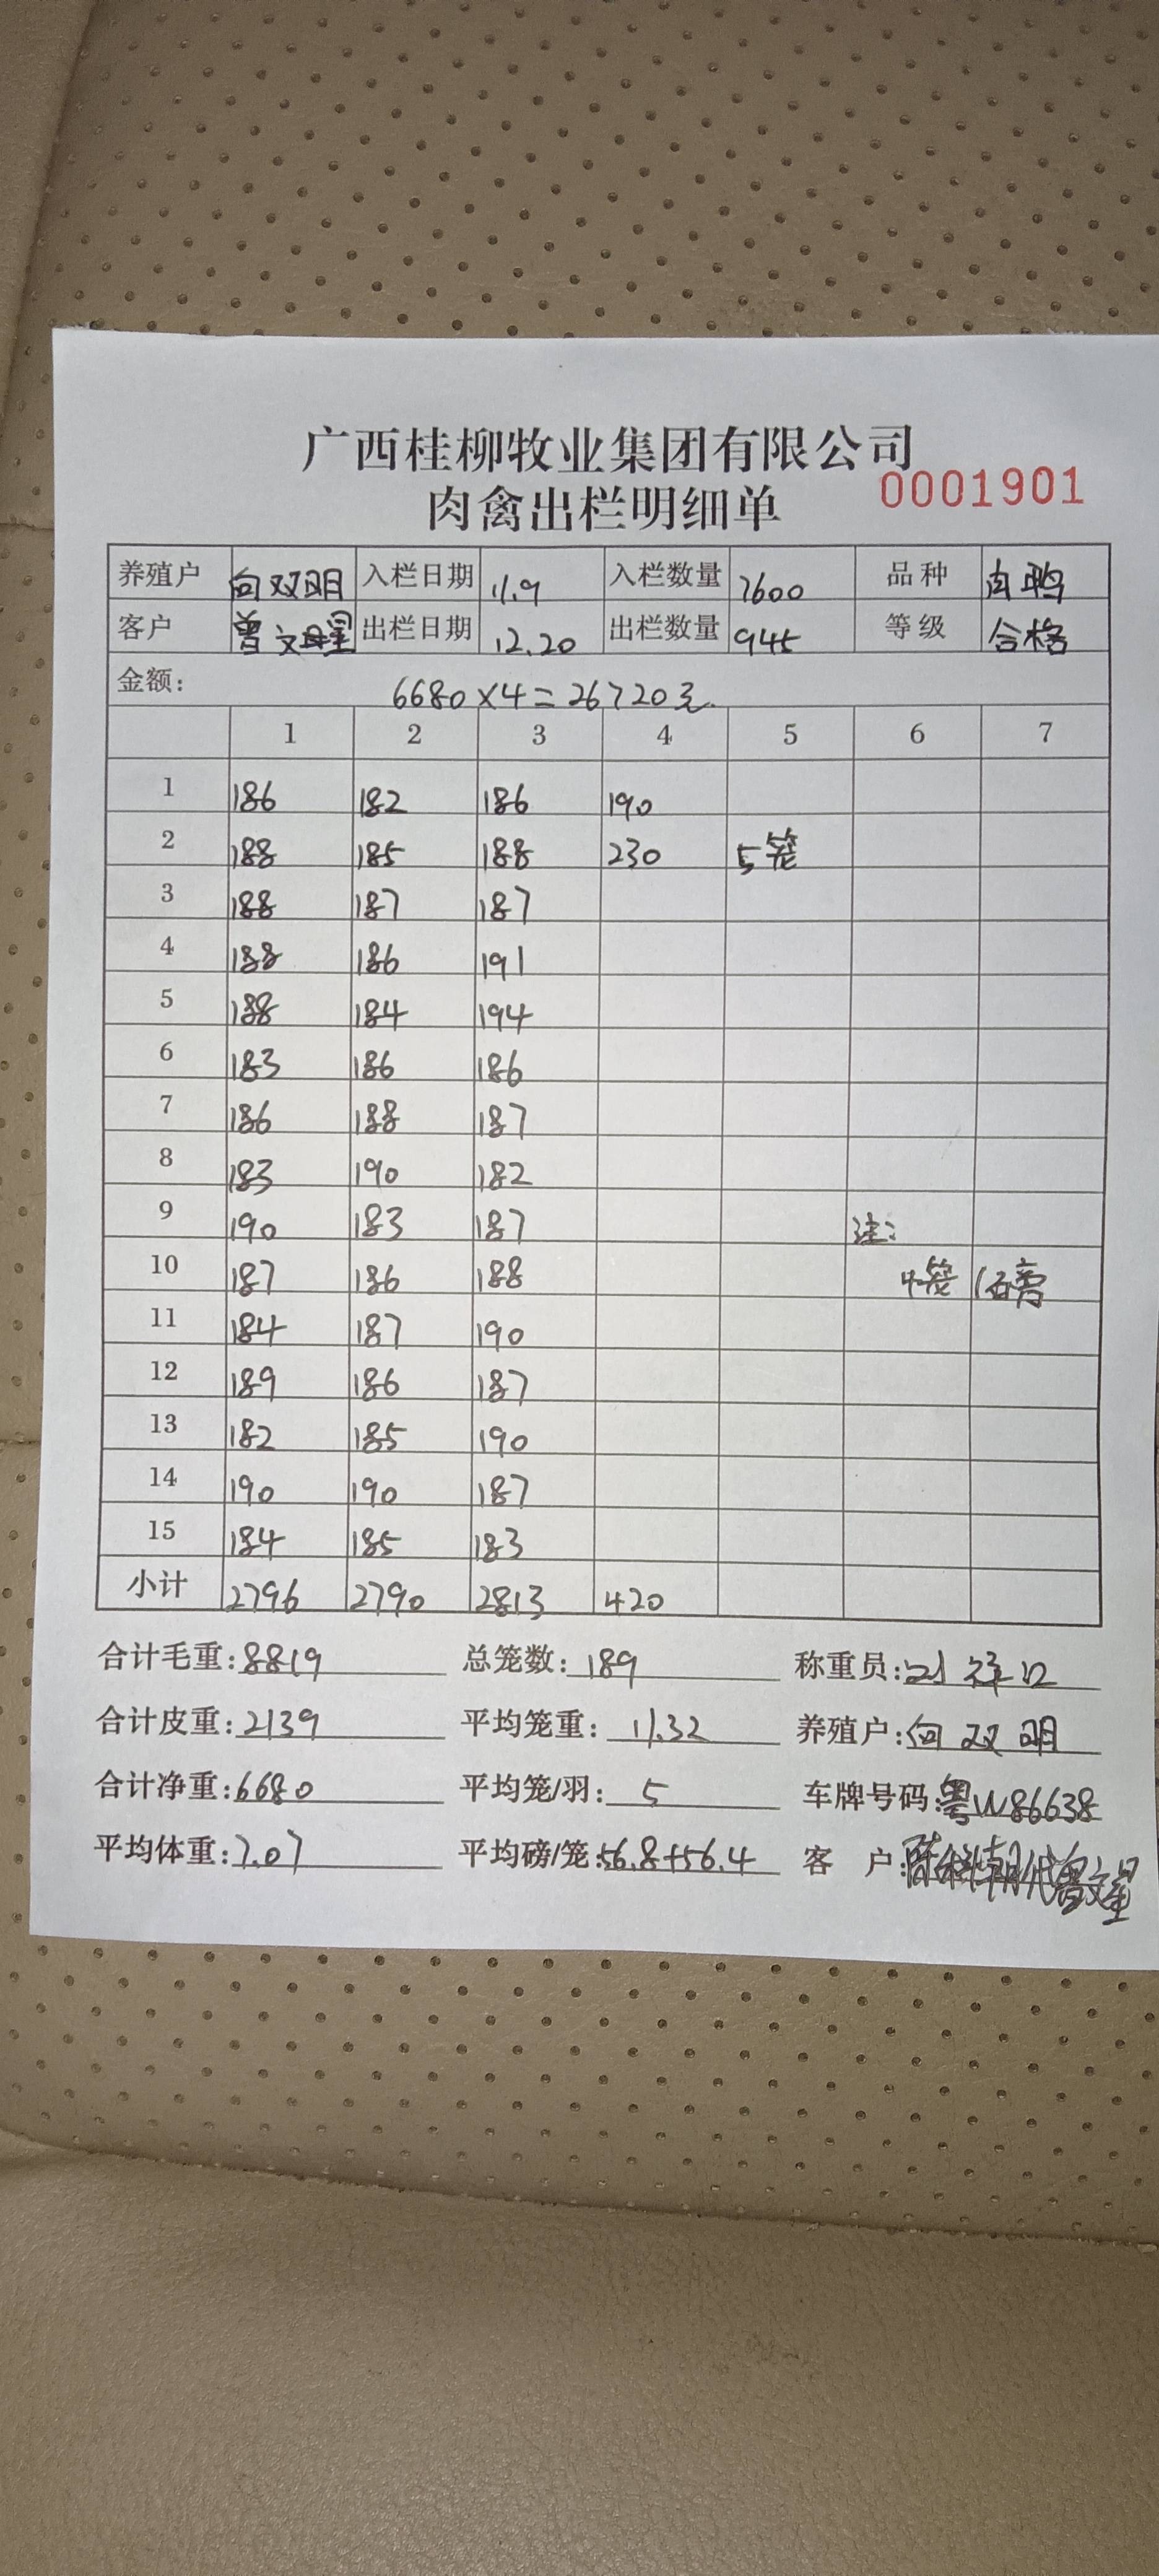 广西桂柳牧业集团有限公司
肉禽出栏明细单 0001901
养殖户 向双明 入栏日期 11.9 入栏数量 7600 品种 肉鸭
客户 曾文星 出栏日期 12.20 出栏数量 945 等级 合格
金额: 6680×4=26720元.
1 2 3 4 5 6 7
1 186 182 186 190
2 188 185 188 230 5笼
3 188 187 187
4 188 186 191
5 188 184 194
6 183 186 186
7 186 188 187
8 183 190 182
9 190 183 187 注:
10 187 186 188
11 184 187 190
12 189 186 187
13 182 185 190
14 190 190 187
15 184 185 183
小计 2796 2790 2813 420
合计毛重:8819 总笼数:189 称重员:
合计皮重:2139 平均笼重:11.32 养殖户:向双明
合计净重:6680 平均笼/羽:5 车牌号码:粤W86638
平均体重:7.07 平均磅/笼:56.8+56.4 客 户: